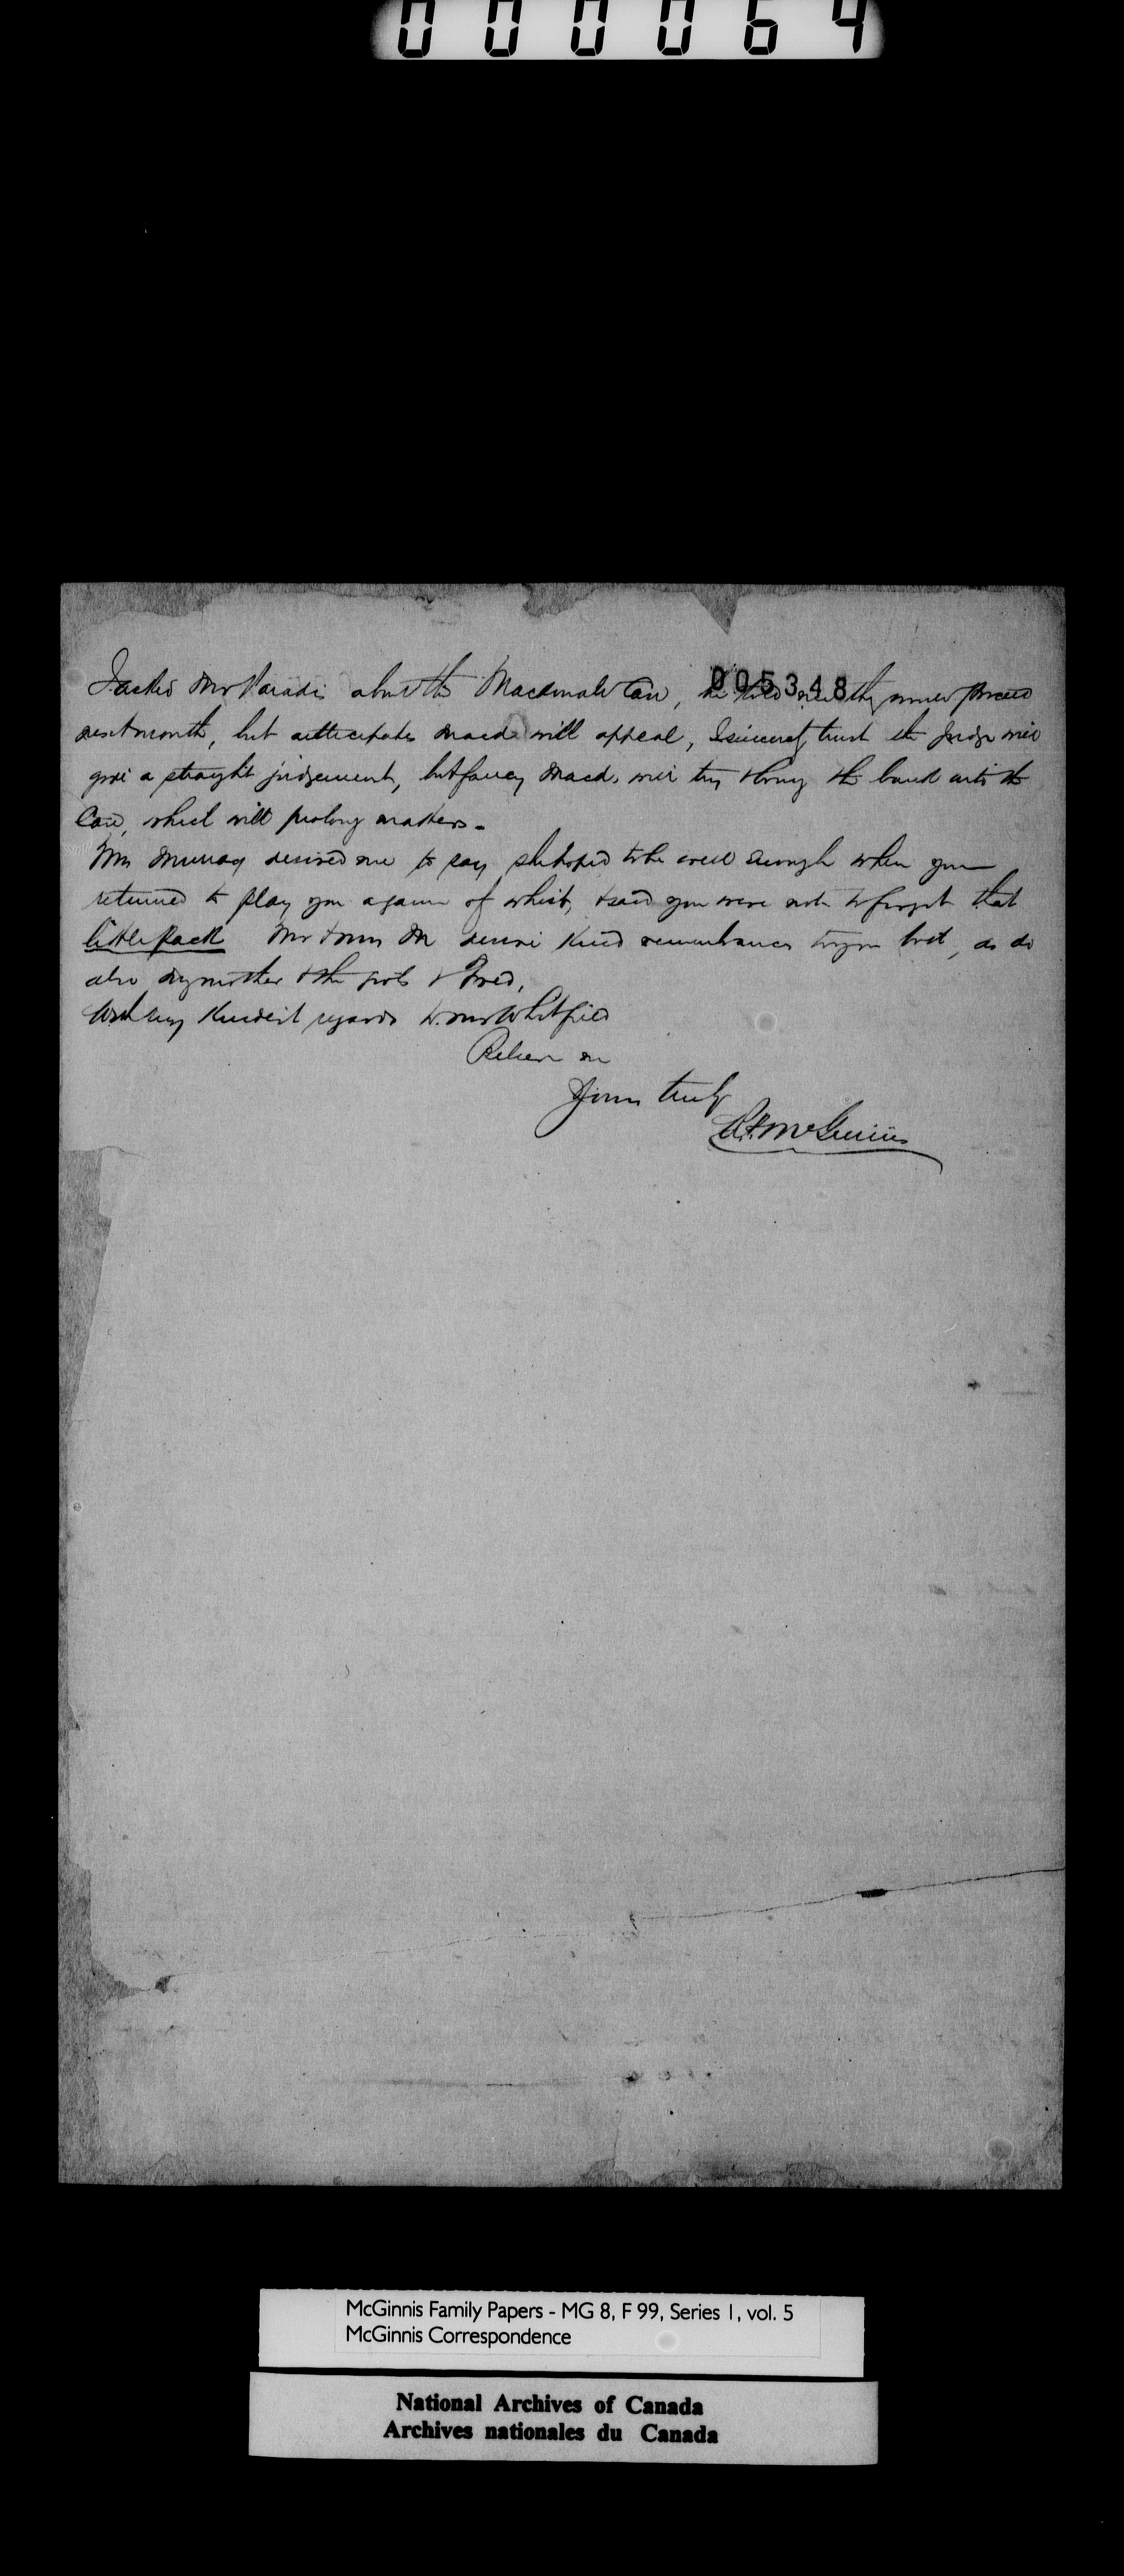 000064
005348
I asked Mr Paradis about the Macdonald Case, he told me they would proceed
next month, but anticipates Macd. will appeal, I sincerely trust the Judge will
give a straight judgement, but fancy Macd. will try & bring the bank into the
Case, which will prolong matters.
Mrs Murray desired me to say she hoped to be well enough when you
returned to play you a game of whist, & said you were not to forget that
little pack Mr & Mrs M desire kind remembrances to you both, as do
also my mother & the girls & Fred,
With my kindest regards to Mrs Whitfield
Believe me
Yours truly
McGinnis
McGinnis Family Papers - MG 8, F 99, Series 1, vol. 5
McGinnis Correspondence
National Archives of Canada
Archives nationales du Canada